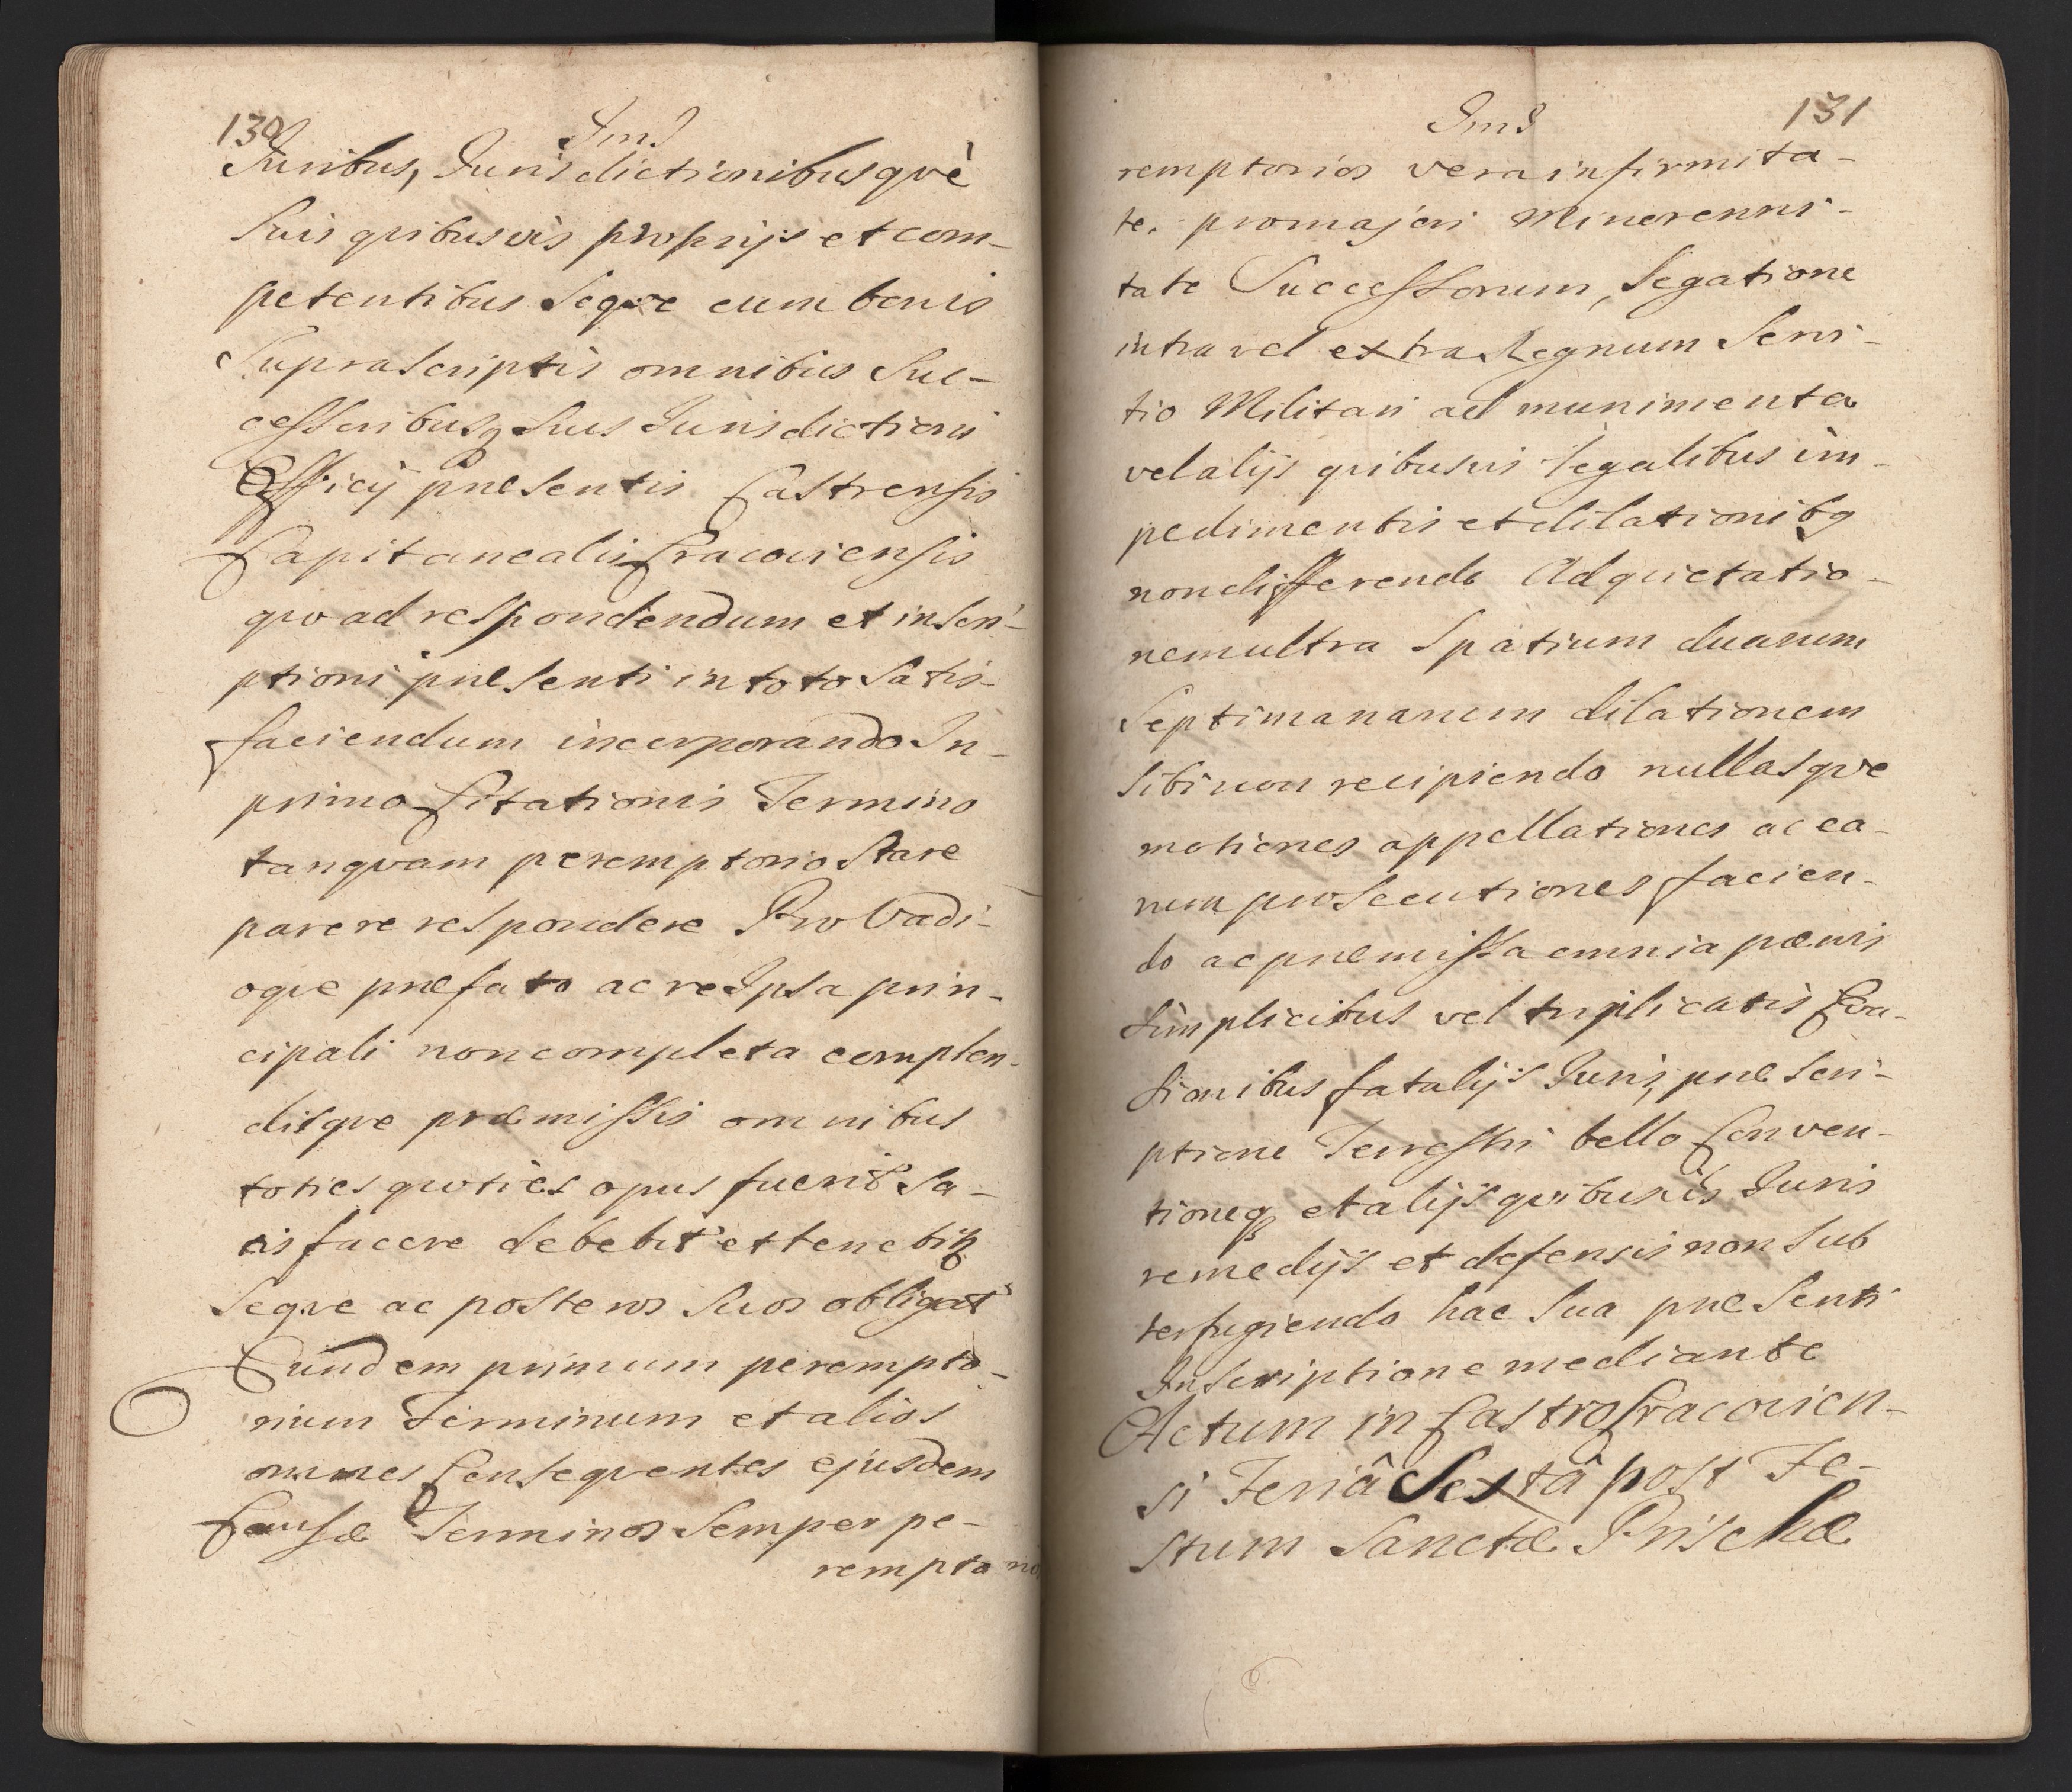 130
Ims
Juribus, Jurisdictionibusqvè
Suis qvibusvis proprijs et com-
petentibus Seqve cum bonis
Suprascriptis omnibus Suc-
cessoribusq Suis Jurisdictioni
Officij præsentis Castrensis
Capitanealis Cracoviensis
qvo ad respondendum et inscri-
ptioni præsenti in toto Satis-
faciendum incorporando In
primo Citationis Termino
tanqvam peremptorio Stare
parere respondere Pro Vadi-
oqve præfato ac re Ipsa prin-
cipali non completa complen-
disqve præmissis omnibus
toties qvoties opus fuerit Sa-
tisfacere debebit et tenebitq
Seqve ac posteros Suos obligat
Eundem primum perempto-
rium Terminum et alios
omnes Conseqventes ejusdem
Causæ Terminos Semper pe-
remptorio
Ims
131
remptorios vera infirmita-
te. pro majori Minorenni-
tate Successorum, Legatione
intra vel extra Regnum Servi-
tio Militari ad munimenta
vel alijs qvibusvis legalibus im-
pedimentis et dilationibq
non differendo Ad qvietatio-
nem ultra Spatium duarum
Septimanarum dilationem
Sibi non recipiendo nullasqve
motiones appellationes ac ea-
rum prosecutiones facien-
do ac præmissa omnia pænis
Simplicibus vel triplicatis Eva-
sionibus fatalijs Juris, præscri-
ptione Terrestri bello Conven-
tioneq et alijs qvibusvis Juris
remedijs et defensis non Sub
terfugiendo hac Sua præsenti
Inscriptione mediante
Actum in Castro Cracovien-
si Feriâ Sextâ post Fe-
stum Sanctæ Prischæ